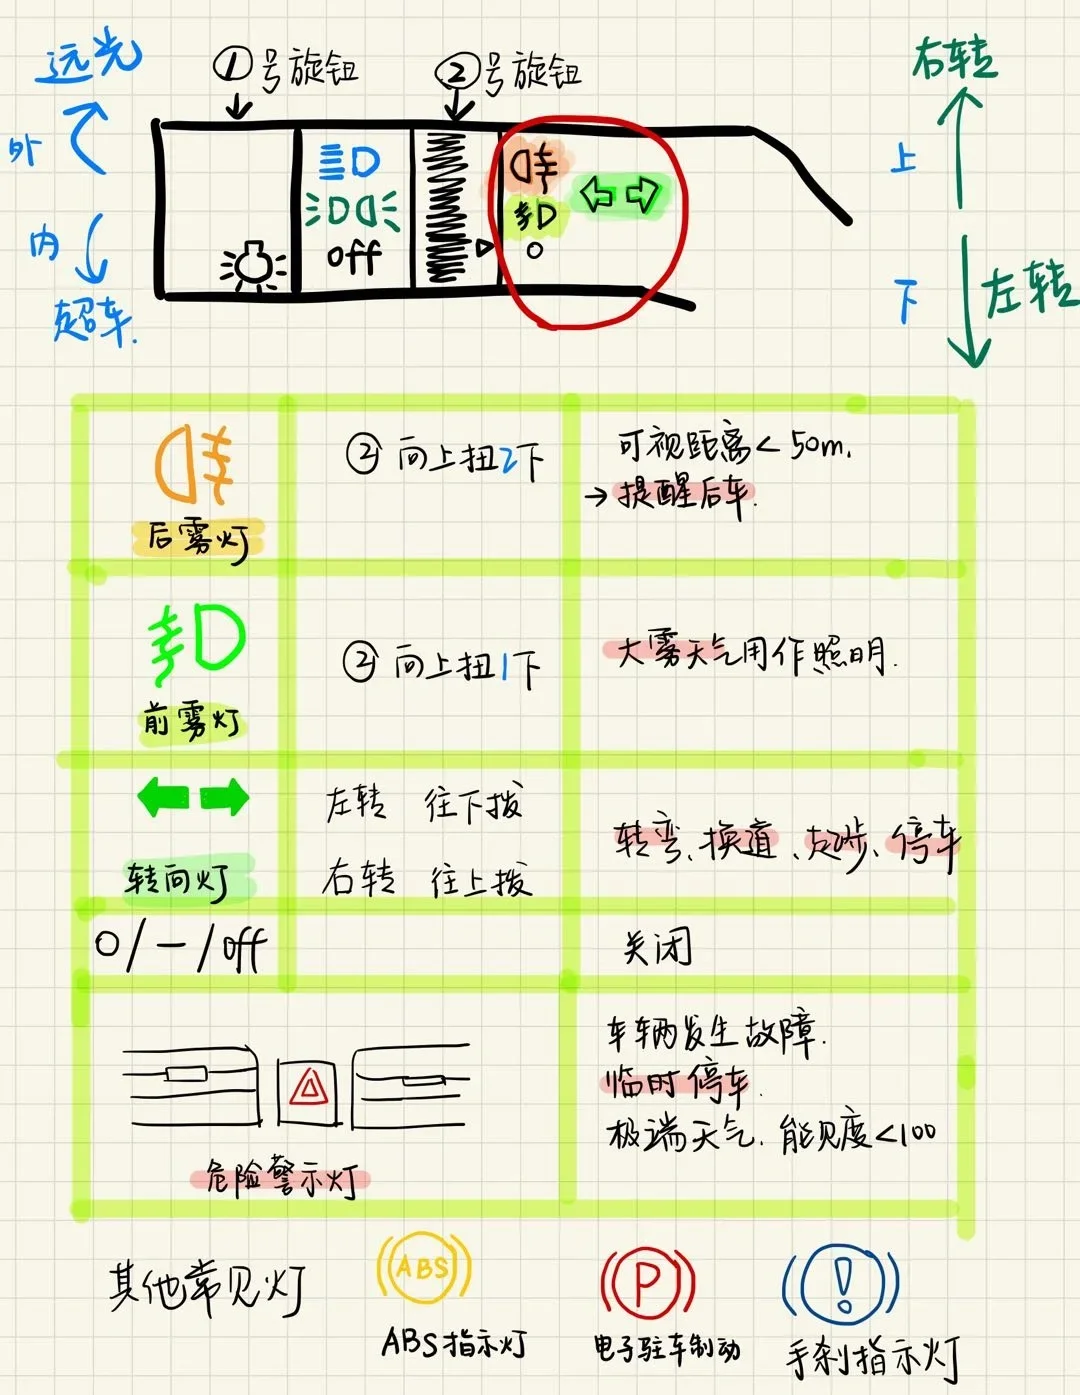 远光
①号旋钮
②号旋钮
右转
外
上
内
off
超车.
下
左转
②向上扭2下
可视距离<50m.
→提醒后车.
后雾灯
②向上扭1下
大雾天气用作照明.
前雾灯
左转 往下拨
转弯、换道、起步、停车
转向灯
右转 往上拨
O/—/off
关闭
车辆发生故障.
临时停车.
极端天气.能见度<100
危险警示灯
其他常见灯
ABS
P
!
ABS指示灯
电子驻车制动
手刹指示灯